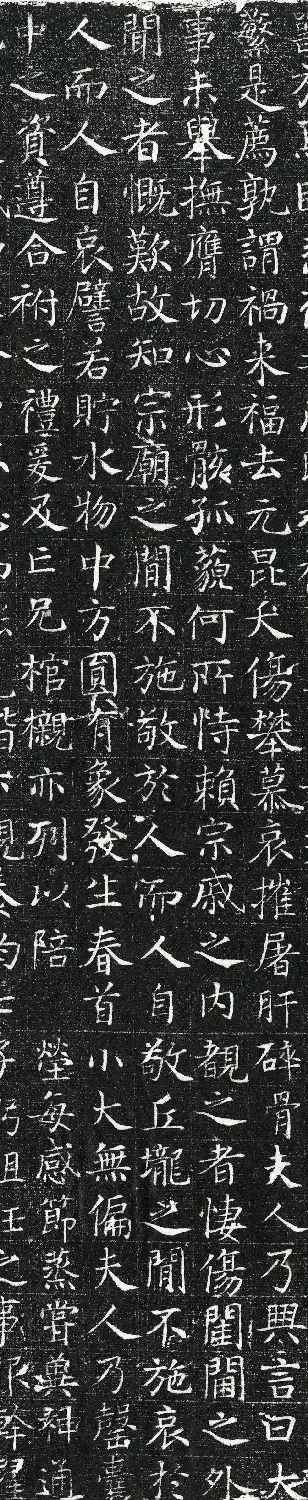 繄是薦孰謂禍来福去元昆夭傷攀慕哀摧屠肝碎骨夫人乃興言曰大
事未舉撫膺切心形骸孤藐何所恃賴宗戚之内覩之者悽傷閨闈之外
聞之者慨歎故知宗廟之間不施敬於人而人自敬丘壠之間不施哀於
人而人自哀譬若貯水物中方圓有象發生春首小大無偏夫人乃罄囊
中之資遵合祔之禮爰及亡兄棺櫬亦列以陪塋每感節蒸嘗奠祠通